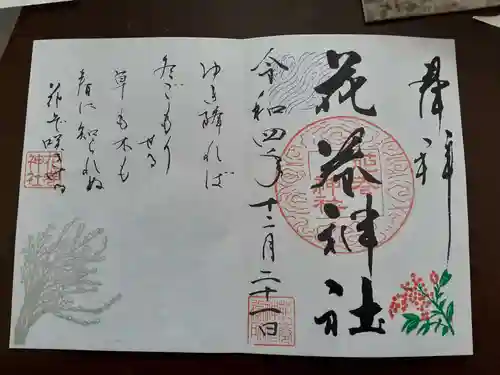 奉拝
花巻神社
令和四年十二月二十一日
ゆき降れば
冬ごもり
せる
草も木も
春に知られぬ
花ぞ咲きける